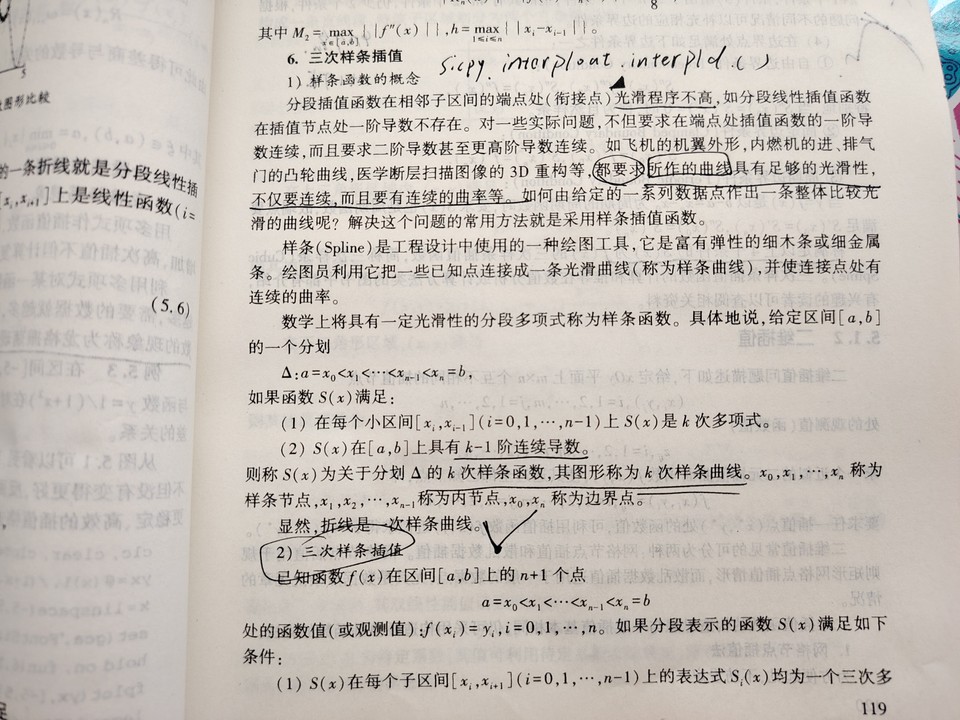 其中 M₂ = max x∈[a,b] { |f″(x)| }, h = max 1≤i≤n { |xᵢ-xᵢ₋₁| }。
6. 三次样条插值
sicpy.
1) 样条函数的概念
分段插值函数在相邻子区间的端点处(衔接点)光滑程序不高,如分段线性插值函数
在插值节点处一阶导数不存在。对一些实际问题,不但要求在端点处插值函数的一阶导
数连续,而且要求二阶导数甚至更高阶导数连续。如飞机的机翼外形,内燃机的进、排气
门的凸轮曲线,医学断层扫描图像的 3D 重构等,都要求所作的曲线具有足够的光滑性,
不仅要连续,而且要有连续的曲率等。如何由给定的一系列数据点作出一条整体比较光
滑的曲线呢? 解决这个问题的常用方法就是采用样条插值函数。
样条(Spline)是工程设计中使用的一种绘图工具,它是富有弹性的细木条或细金属
条。绘图员利用它把一些已知点连接成一条光滑曲线(称为样条曲线),并使连接点处有
连续的曲率。
数学上将具有一定光滑性的分段多项式称为样条函数。具体地说,给定区间[a,b]
的一个分划
Δ:a=x₀<x₁<⋯<xₙ₋₁<xₙ=b,
如果函数 S(x)满足:
(1) 在每个小区间[xᵢ,xᵢ₋₁](i=0,1,⋯,n-1)上 S(x)是 k 次多项式。
(2) S(x)在[a,b]上具有 k-1 阶连续导数。
则称 S(x)为关于分划 Δ 的 k 次样条函数,其图形称为 k 次样条曲线。x₀,x₁,⋯,xₙ 称为
样条节点,x₁,x₂,⋯,xₙ₋₁称为内节点,x₀,xₙ 称为边界点。
显然,折线是一次样条曲线。
2) 三次样条插值
已知函数 f(x)在区间[a,b]上的 n+1 个点
a=x₀<x₁<⋯<xₙ₋₁<xₙ=b
处的函数值(或观测值):f(xᵢ)=yᵢ,i=0,1,⋯,n。如果分段表示的函数 S(x)满足如下
条件:
(1) S(x)在每个子区间[xᵢ,xᵢ₊₁](i=0,1,⋯,n-1)上的表达式 Sᵢ(x)均为一个三次多
119
图形比较
的一条折线就是分段线性插
[xᵢ,xᵢ₊₁]上是线性函数(i=
(5.6)